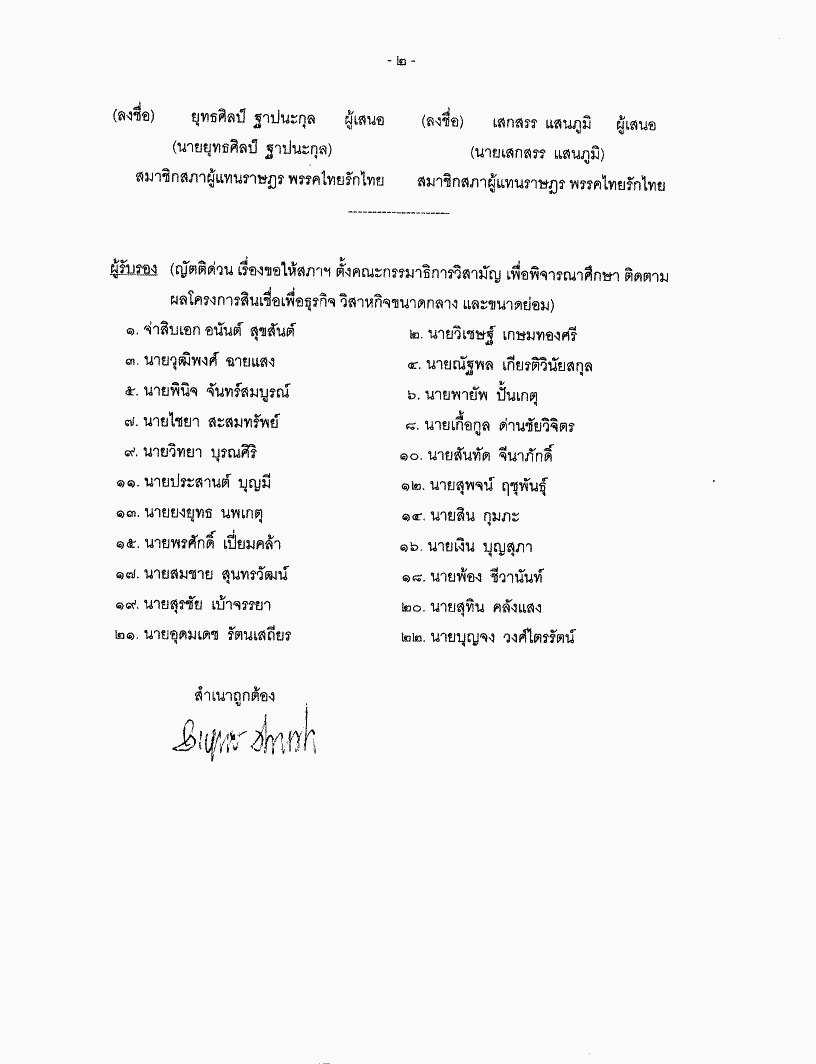 - ๒ -
(ลงชื่อ) ยุทธศิลป์ ฐาปนะกุล ผู้เสนอ (ลงชื่อ) เสกสรร แสนภูมิ ผู้เสนอ
(นายยุทธศิลป์ ฐาปนะกุล) (นายเสกสรร แสนภูมิ)
สมาชิกสภาผู้แทนราษฎร พรรคไทยรักไทย สมาชิกสภาผู้แทนราษฎร พรรคไทยรักไทย
---------------------
ผู้รับรอง (ญัตติด่วน เรื่องขอให้สภาฯ ตั้งคณะกรรมาธิการวิสามัญ เพื่อพิจารณาศึกษา ติดตาม
ผลโครงการสินเชื่อเพื่อธุรกิจ วิสาหกิจขนาดกลาง และขนาดย่อม)
๑. จ่าสิบเอก อนันต์ สุขสันต์ ๒. นายวิเชษฐ์ เกษมทองศรี
๓. นายวุฒิพงศ์ ฉายแสง ๔. นายณัฐพล เกียรติวินัยสกุล
๕. นายพินิจ จันทร์สมบูรณ์ ๖. นายพายัพ ปั้นเกตุ
๗. นายไชยา สะสมทรัพย์ ๘. นายเกื้อกูล ด่านชัยวิจิตร
๙. นายวิทยา บุรณศิริ ๑๐. นายสันทัด จีนาภักดิ์
๑๑. นายประสานต์ บุญมี ๑๒. นายสุพจน์ ฤชุพันธุ์
๑๓. นายยงยุทธ นพเกตุ ๑๔. นายสิน กุมภะ
๑๕. นายพรศักดิ์ เปี่ยมคล้า ๑๖. นายเงิน บุญสุภา
๑๗. นายสมชาย สุนทรวัฒน์ ๑๘. นายฟ้อง ชีวานันท์
๑๙. นายสุรชัย เบ้าจรรยา ๒๐. นายสุทิน คลังแสง
๒๑. นายอุดมเดช รัตนเสถียร ๒๒. นายบุญจง วงศ์ไตรรัตน์
สำเนาถูกต้อง